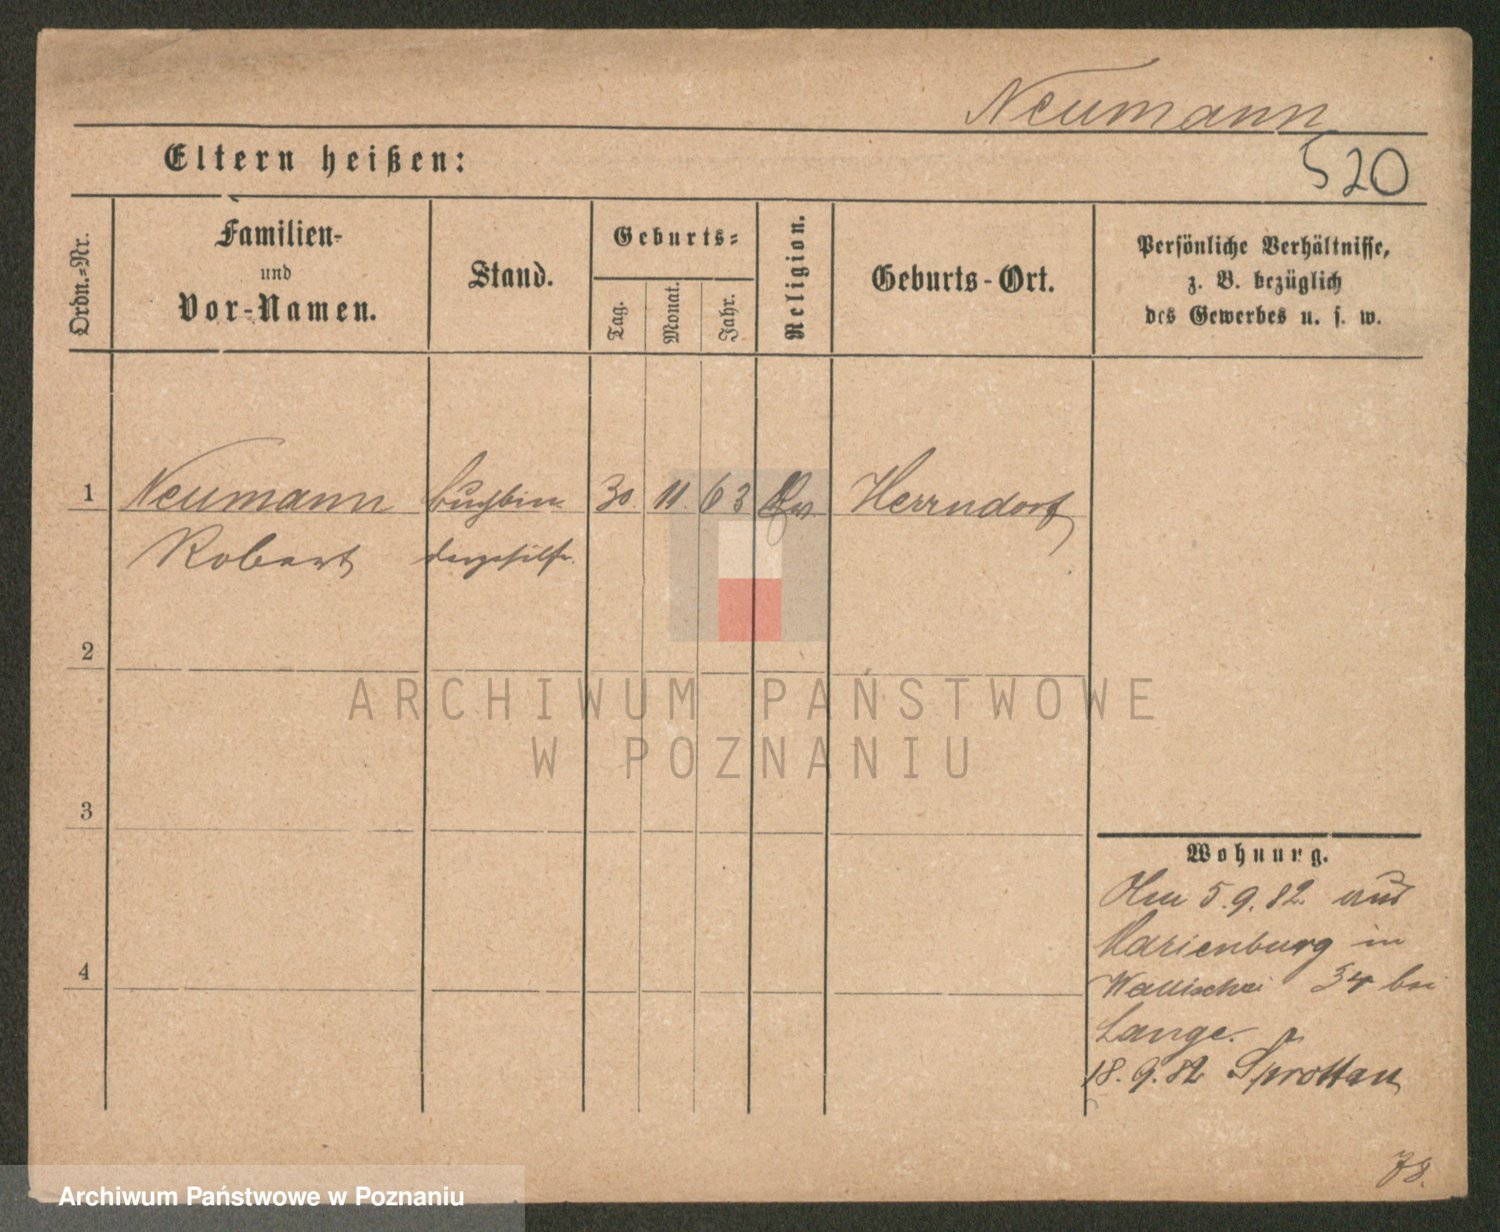 Neumann
520
Eltern heißen:
Ordn.-Nr.
Familien-
und
Vor-Namen.
Stand.
Geburts-
Tag.
Monat.
Jahr.
Religion.
Geburts-Ort.
Persönliche Verhältnisse,
z. B. bezüglich
des Gewerbes u. s. w.
1 Neumann Buchbin- 30. 11. 63 Ev. Herrndorf
Robert dergehilfe
2
3
4
Wohnung.
5.9.82. aus
Marienburg in
Wallischei 34 bei
Lange.
18.9.82 Sprottau
78.
ARCHIWUM PAŃSTWOWE
W POZNANIU
Archiwum Państwowe w Poznaniu